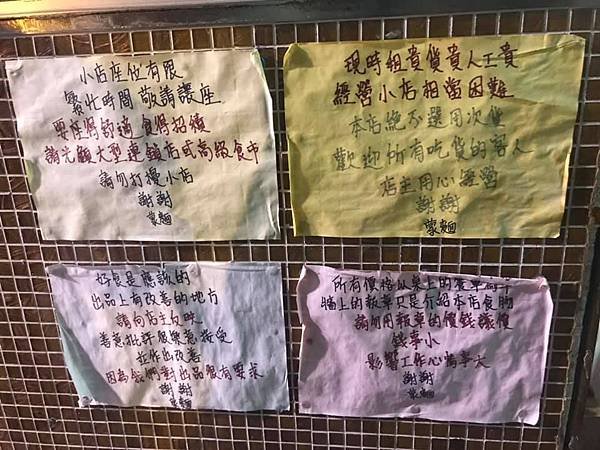 小店座位有限
繁忙時間 敬請讓座
要座得舒適 食得招積
請光顧大型連鎖店或高級食市
請勿打擾小店
謝謝
蒙麵
現時租貴貨貴人工貴
經營小店相當困難
本店絕不選用次貨
歡迎所有吃貨的客人
店主用心經營
謝謝
蒙麵
好食是應該的
出品上有改善的地方
請向店主反映
善意批評很樂意接受
並作出改善
因為我們對出品很有要求
謝謝
蒙麵
所有價格以桌上的餐單為準
牆上的報章只是介紹本店食物
請勿用報章的價錢議價
錢事小
影響工作心情事大
謝謝
蒙麵